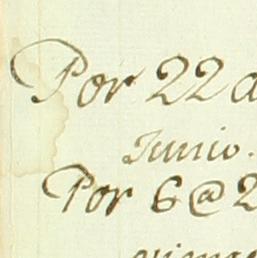 Por 22 a
Junio.
Por 6 @ 2